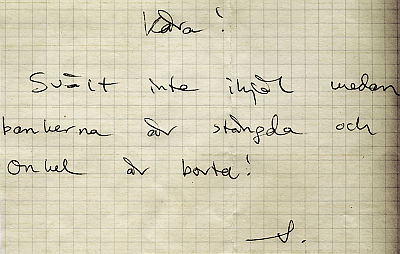 Kära!
Svält inte ihjäl medan
bankerna är stängda och
Onkel är borta!
S.